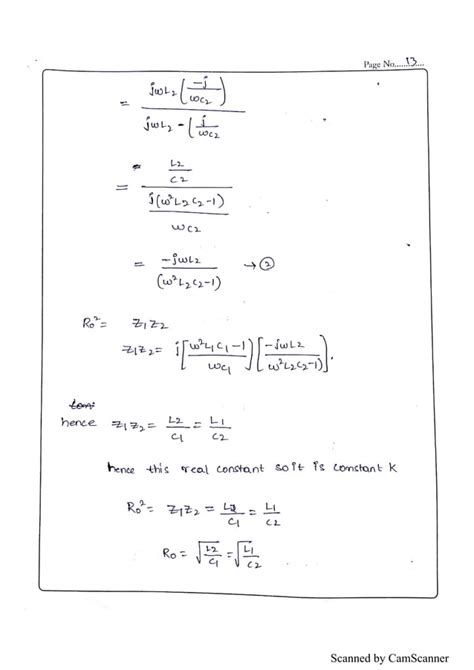 Page No......13....
= jωL2 (-j/ωC2) / jωL2 - (j/ωC2
= L2/C2 / j(ω²L2C2-1)/ωC2
= -jωL2/(ω²L2C2-1) → ②
Ro² = Z1Z2
Z1Z2 = j[ω²L1C1-1)/ωC1] [-jωL2/ω²L2C2-1)].
hence Z1Z2 = L2/C1 = L1/C2
hence this real constant so it is constant K
Ro² = Z1Z2 = L2/C1 = L1/C2
Ro = √L2/C1 = √L1/C2
Scanned by CamScanner